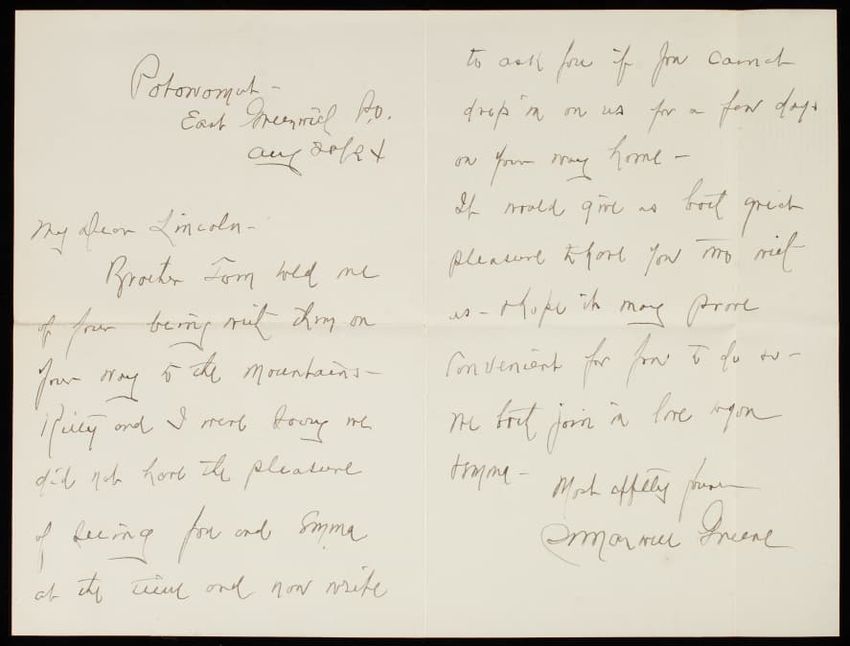 Potowomut -
East Greenwich P.O.
Aug 20/84
My Dear Lincoln -
Brother Tom told me
of your being with them on
your way to the Mountains -
Kitty and I were sorry we
did not have the pleasure
of seeing you and Emma
at the time and now write
to ask you if you cannot
drop in on us for a few days
on your way home -
It would give us both great
pleasure to have you two visit
us - I hope it may prove
convenient for you to do so -
We both join in love to you
Emma -
Most affctly yours
Maxwell Greene